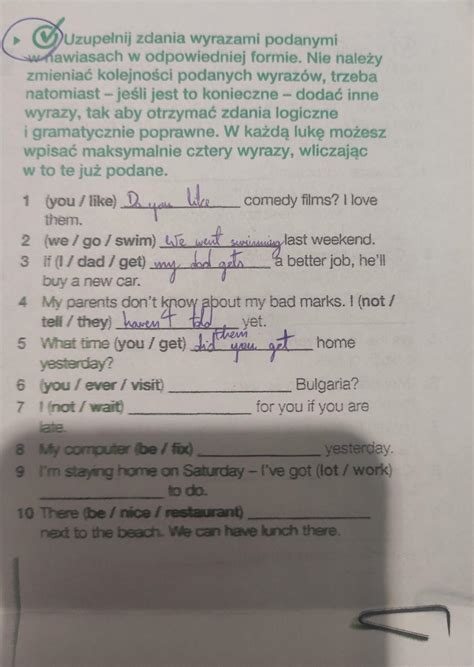 Uzupełnij zdania wyrazami podanymi
w nawiasach w odpowiedniej formie. Nie należy
zmieniać kolejności podanych wyrazów, trzeba
natomiast – jeśli jest to konieczne – dodać inne
wyrazy, tak aby otrzymać zdania logiczne
i gramatycznie poprawne. W każdą lukę możesz
wpisać maksymalnie cztery wyrazy, wliczając
w to te już podane.
1 (you / like) Do you like comedy films? I love
them.
2 (we / go / swim) We went swimming last weekend.
3 If (I / dad / get) my dad gets a better job, he'll
buy a new car.
4 My parents don't know about my bad marks. I (not /
tell / they) haven't told them yet.
5 What time (you / get) did you get home
yesterday?
6 (you / ever / visit) Bulgaria?
7 I (not / wait) for you if you are
late.
8 My computer (be / fix) yesterday.
9 I'm staying home on Saturday – I've got (lot / work)
to do.
10 There (be / nice / restaurant)
next to the beach. We can have lunch there.